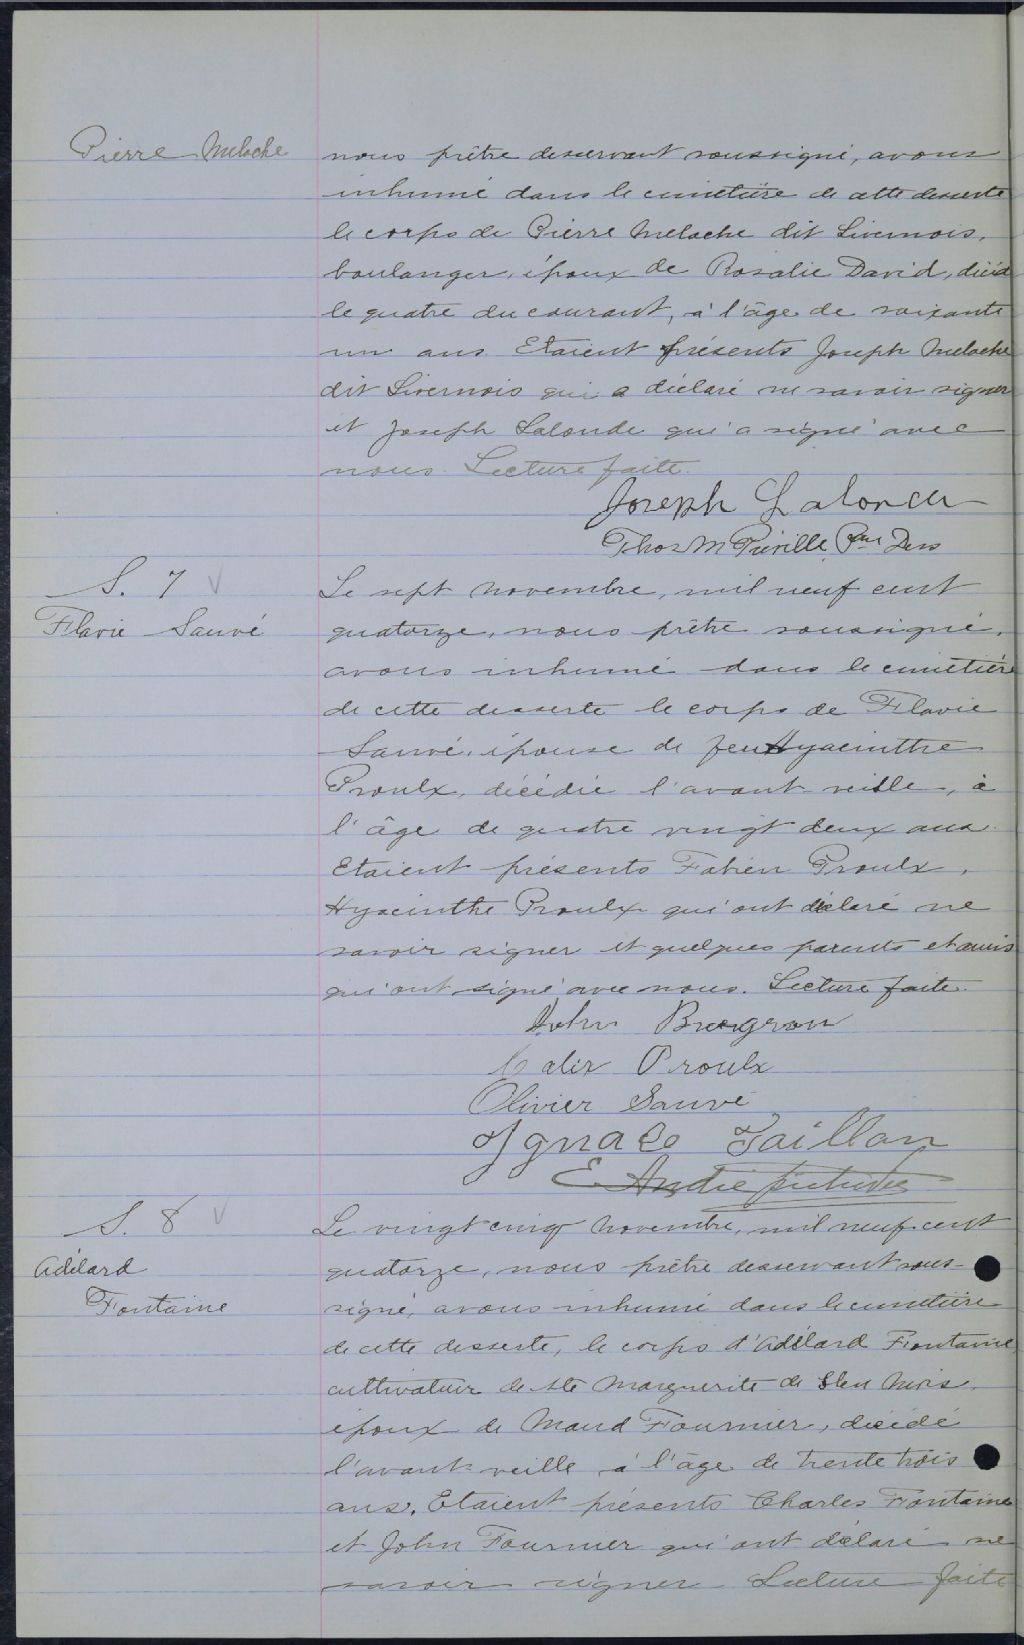 Pierre Meloche
nous prêtre desservant soussigné, avons
inhumé dans le cimetière de cette desserte
le corps de Pierre Meloche dit Livernois,
boulanger, époux de Rosalie David, décédé
le quatre du courant, à l'âge de soixante
un ans Etaient présents Joseph Meloche
dit Livernois qui a déclaré ne savoir signer
et Joseph Lalonde qui a signé avec
nous. Lecture faite.
Joseph Lalonde
Thos M Préville Ptre Des
S. 7
Flavie Sauvé
Le sept novembre, mil neuf cent
quatorze, nous prêtre soussigné,
avons inhumé dans le cimetière
de cette desserte le corps de Flavie
Sauvé, épouse de feu Hyacinthe
Proulx, décédée l'avant-veille, à
l'âge de quatre vingt deux ans.
Etaient présents Fabien Proulx,
Hyacinthe Proulx qui ont déclaré ne
savoir signer et quelques parents et amis
qui ont signé avec nous. Lecture faite.
John Bergeron
Calix Proulx
Olivier Sauvé
Ignace Taillon
E. André ptre
S. 8
Adélard
Fontaine
Le vingt cinq novembre, mil neuf cent
quatorze, nous prêtre desservant sous-
signé, avons inhumé dans le cimetière
de cette desserte, le corps d'Adélard Fontaine,
cultivateur de Ste Marguerite de
époux de Maud Fournier, décédé
l'avant-veille à l'âge de trente trois
ans. Etaient présents Charles Fontaine
et John Fournier qui ont déclaré ne
savoir signer Lecture faite